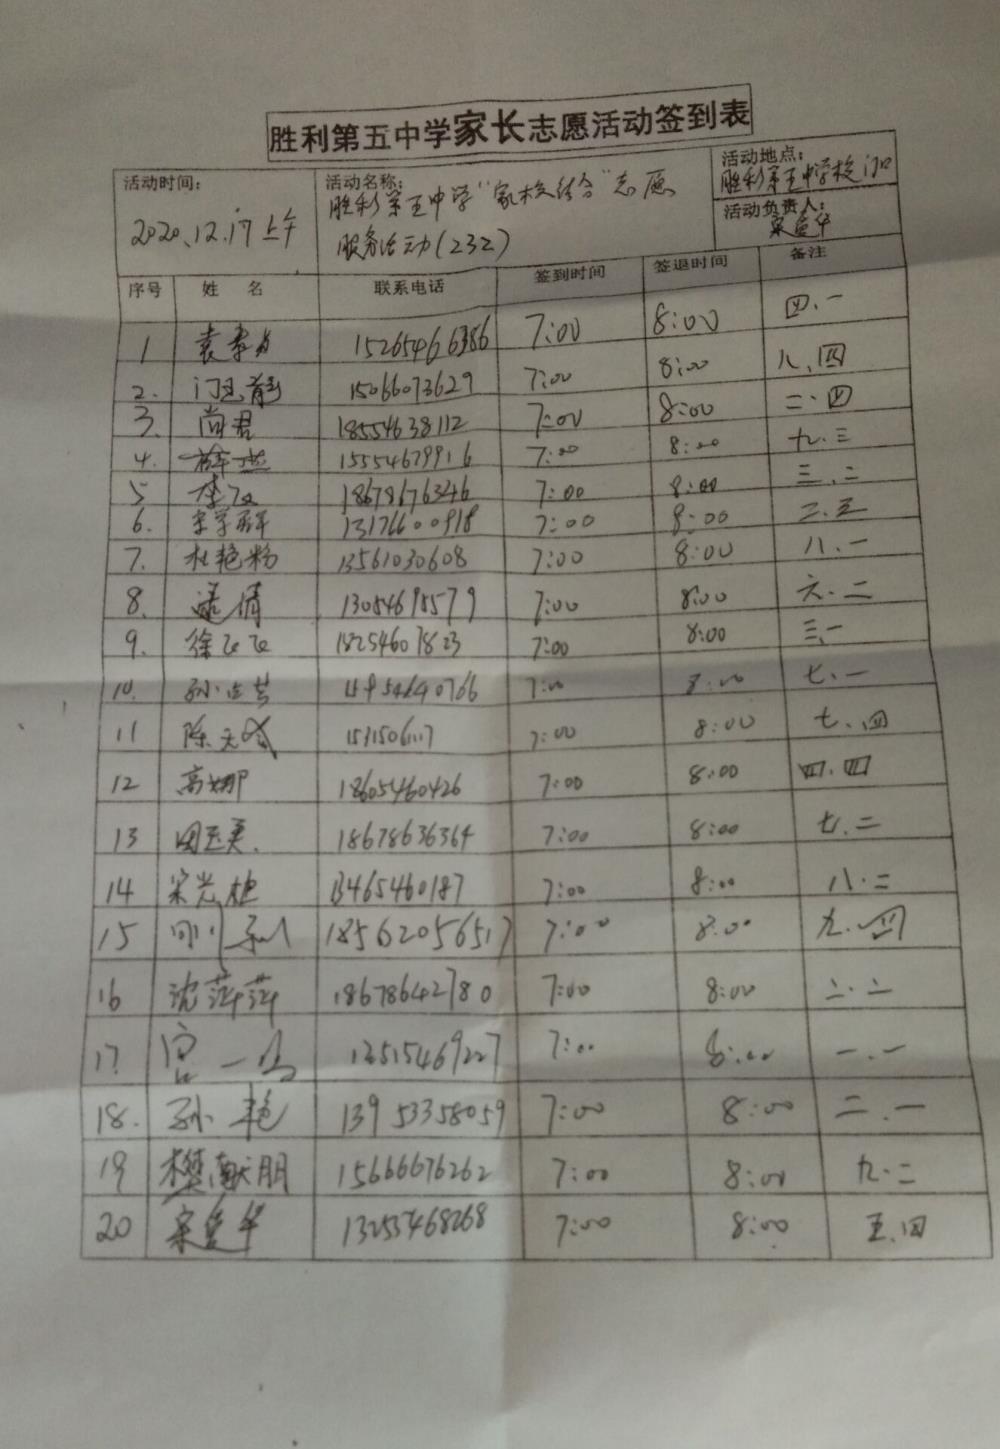 胜利第五中学家长志愿活动签到表
活动时间: 2020.12.17上午
活动名称: 胜利第五中学"家校结合"志愿
服务活动(232)
活动地点:
胜利第五中学校门口
活动负责人:
序号 姓 名 联系电话 签到时间 签退时间 备注
1 15265466386 7:00 8:00 四.一
2. 15066073629 7:00 8:00 八.四
3. 尚君 18554638112 7:00 8:00 二.四
4. 15554679916 7:00 8:00 九.三
5 18678676346 7:00 8:00 三.二
6. 13176600918 7:00 8:00 二.五
7. 杜艳粉 13561030608 7:00 8:00 八.一
8. 倩 13054695579 7:00 8:00 六.二
9. 徐飞飞 18254607823 7:00 8:00 三.一
10. 7:00 8:00 七.一
11 7:00 8:00 七.四
12 高娜 18605460426 7:00 8:00 四.四
13 18678636364 7:00 8:00 七.二
14 宋光 13465460187 7:00 8:00 八.二
15 18562056517 7:00 8:00 九.四
16 沈萍萍 18678642780 7:00 8:00 二.二
17. 宫一鸣 13515469227 7:00 8:00 一.一
18. 孙艳 13953358059 7:00 8:00 二.一
19 樊献朋 15666676262 7:00 8:00 九.二
20 13255468268 7:00 8:00 五.四